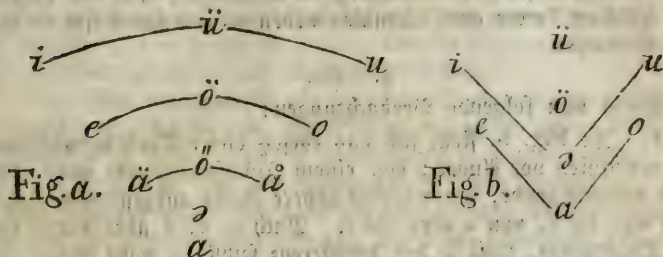 i ü u
e ö o
Fig. a. ä ő å
ə
a
ü
i u
ö
e o
ə
Fig. b.
a